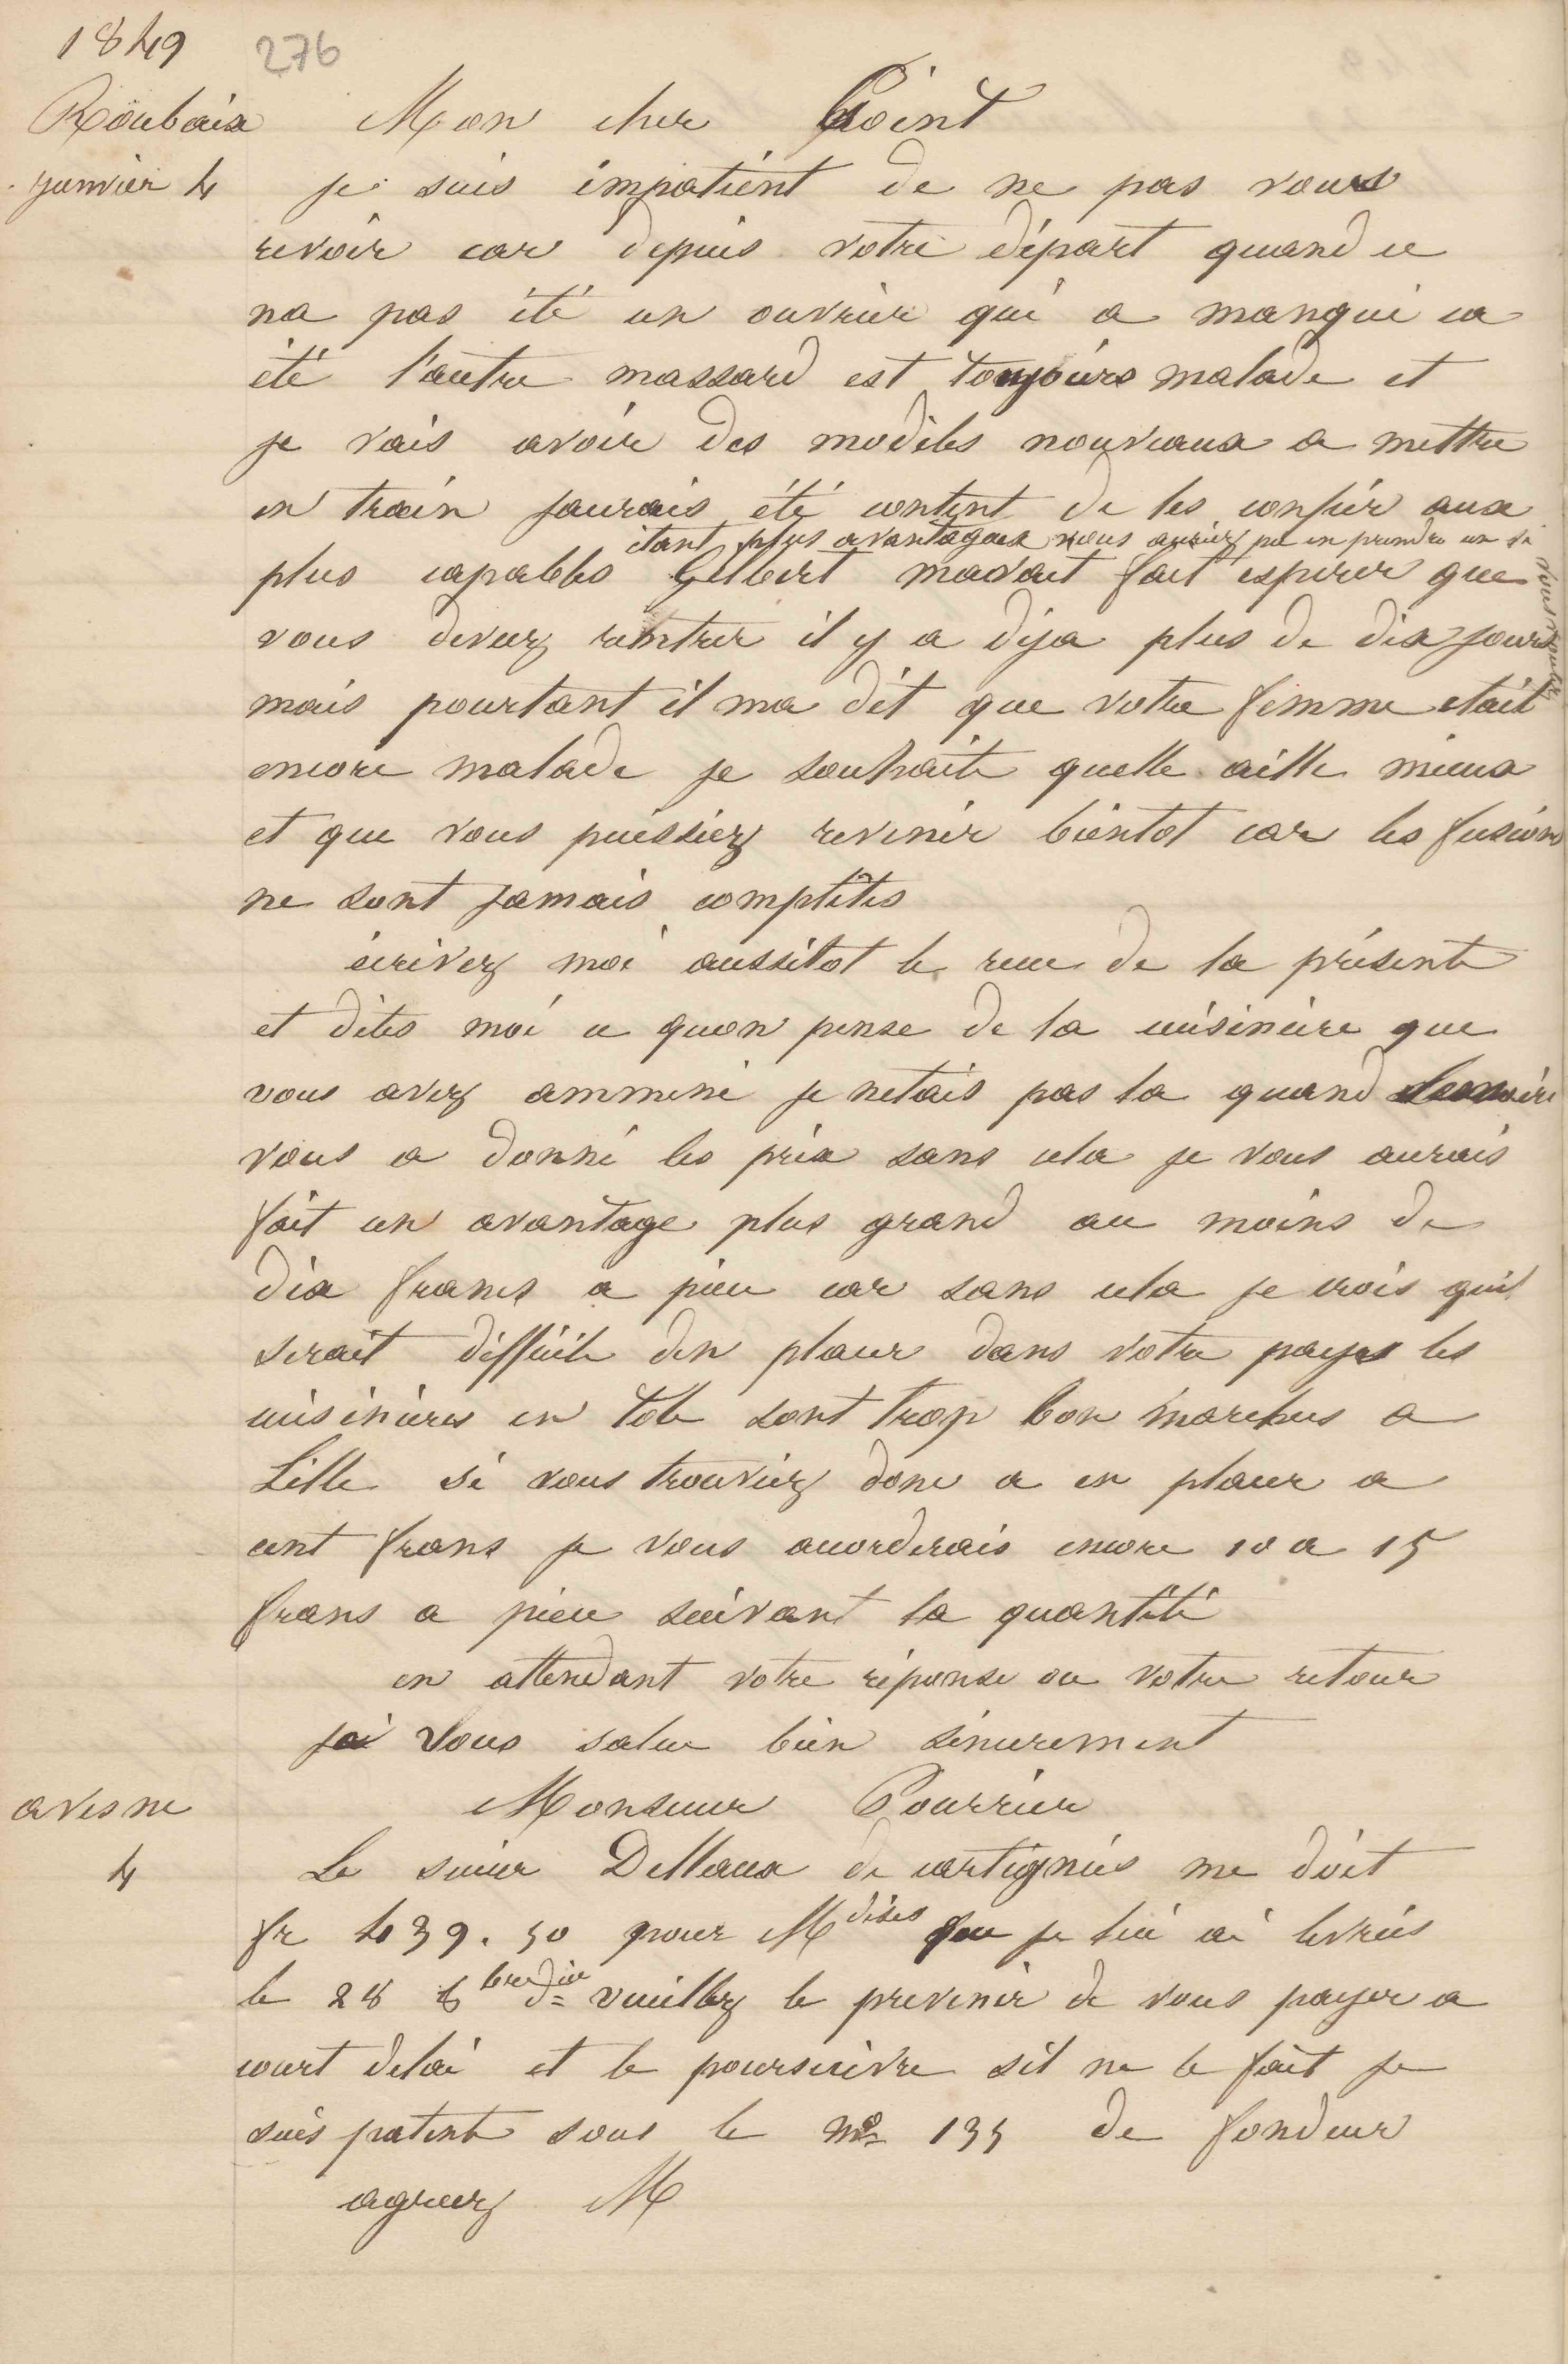 1849
276
Roubaix
janvier 4
Mon cher Point
je suis impatient de ne pas vous
revoir car depuis votre départ quand ce
na pas été un ouvrier qui a manqué ca
été l'autre massard est toujours malade et
je vais avoir des modèles nouveaux a mettre
en train jaurais été content de les confier aux
étant plus avantageux vous auriez pu en prendre un si
vous
plus capables Gilbert mavait fait esperer que
vous deviez rentrer il y a déja plus de dix jours
mais pourtant il ma dit que votre femme etait
encore malade je souhaite quelle aille mieux
et que vous puissiez revenir bientot car les fusions
ne sont jamais complètes
écrivez moi aussitot le reçu de la présente
et dites moi ce quon pense de la cuisinière que
vous avez ammené je netais pas la quand
vous a donné les prix sans cela je vous aurais
fait un avantage plus grand au moins de
dix francs a pièce car sans cela je crois quil
serait difficile den placer dans votre pays les
cuisinières en tole sont trop bon marchés a
Lille si vous trouviez donc a en placer a
cent frans je vous accorderais encore 10 a 15
frans a pièce suivant la quantité
en attendant votre réponse ou votre retour
je vous salue bien sincerement
avesne
4
Monsieur Pourrier
Le sieur Dellaux de cartignies me doit
fr 439.50 pour Mdises que je lui ai livrées
le 28 bre dier veuillez le prevenir de vous payer a
court delai et le poursuivre sil ne le fait je
suis patenté sous le no 135 de fondeur
agreez M